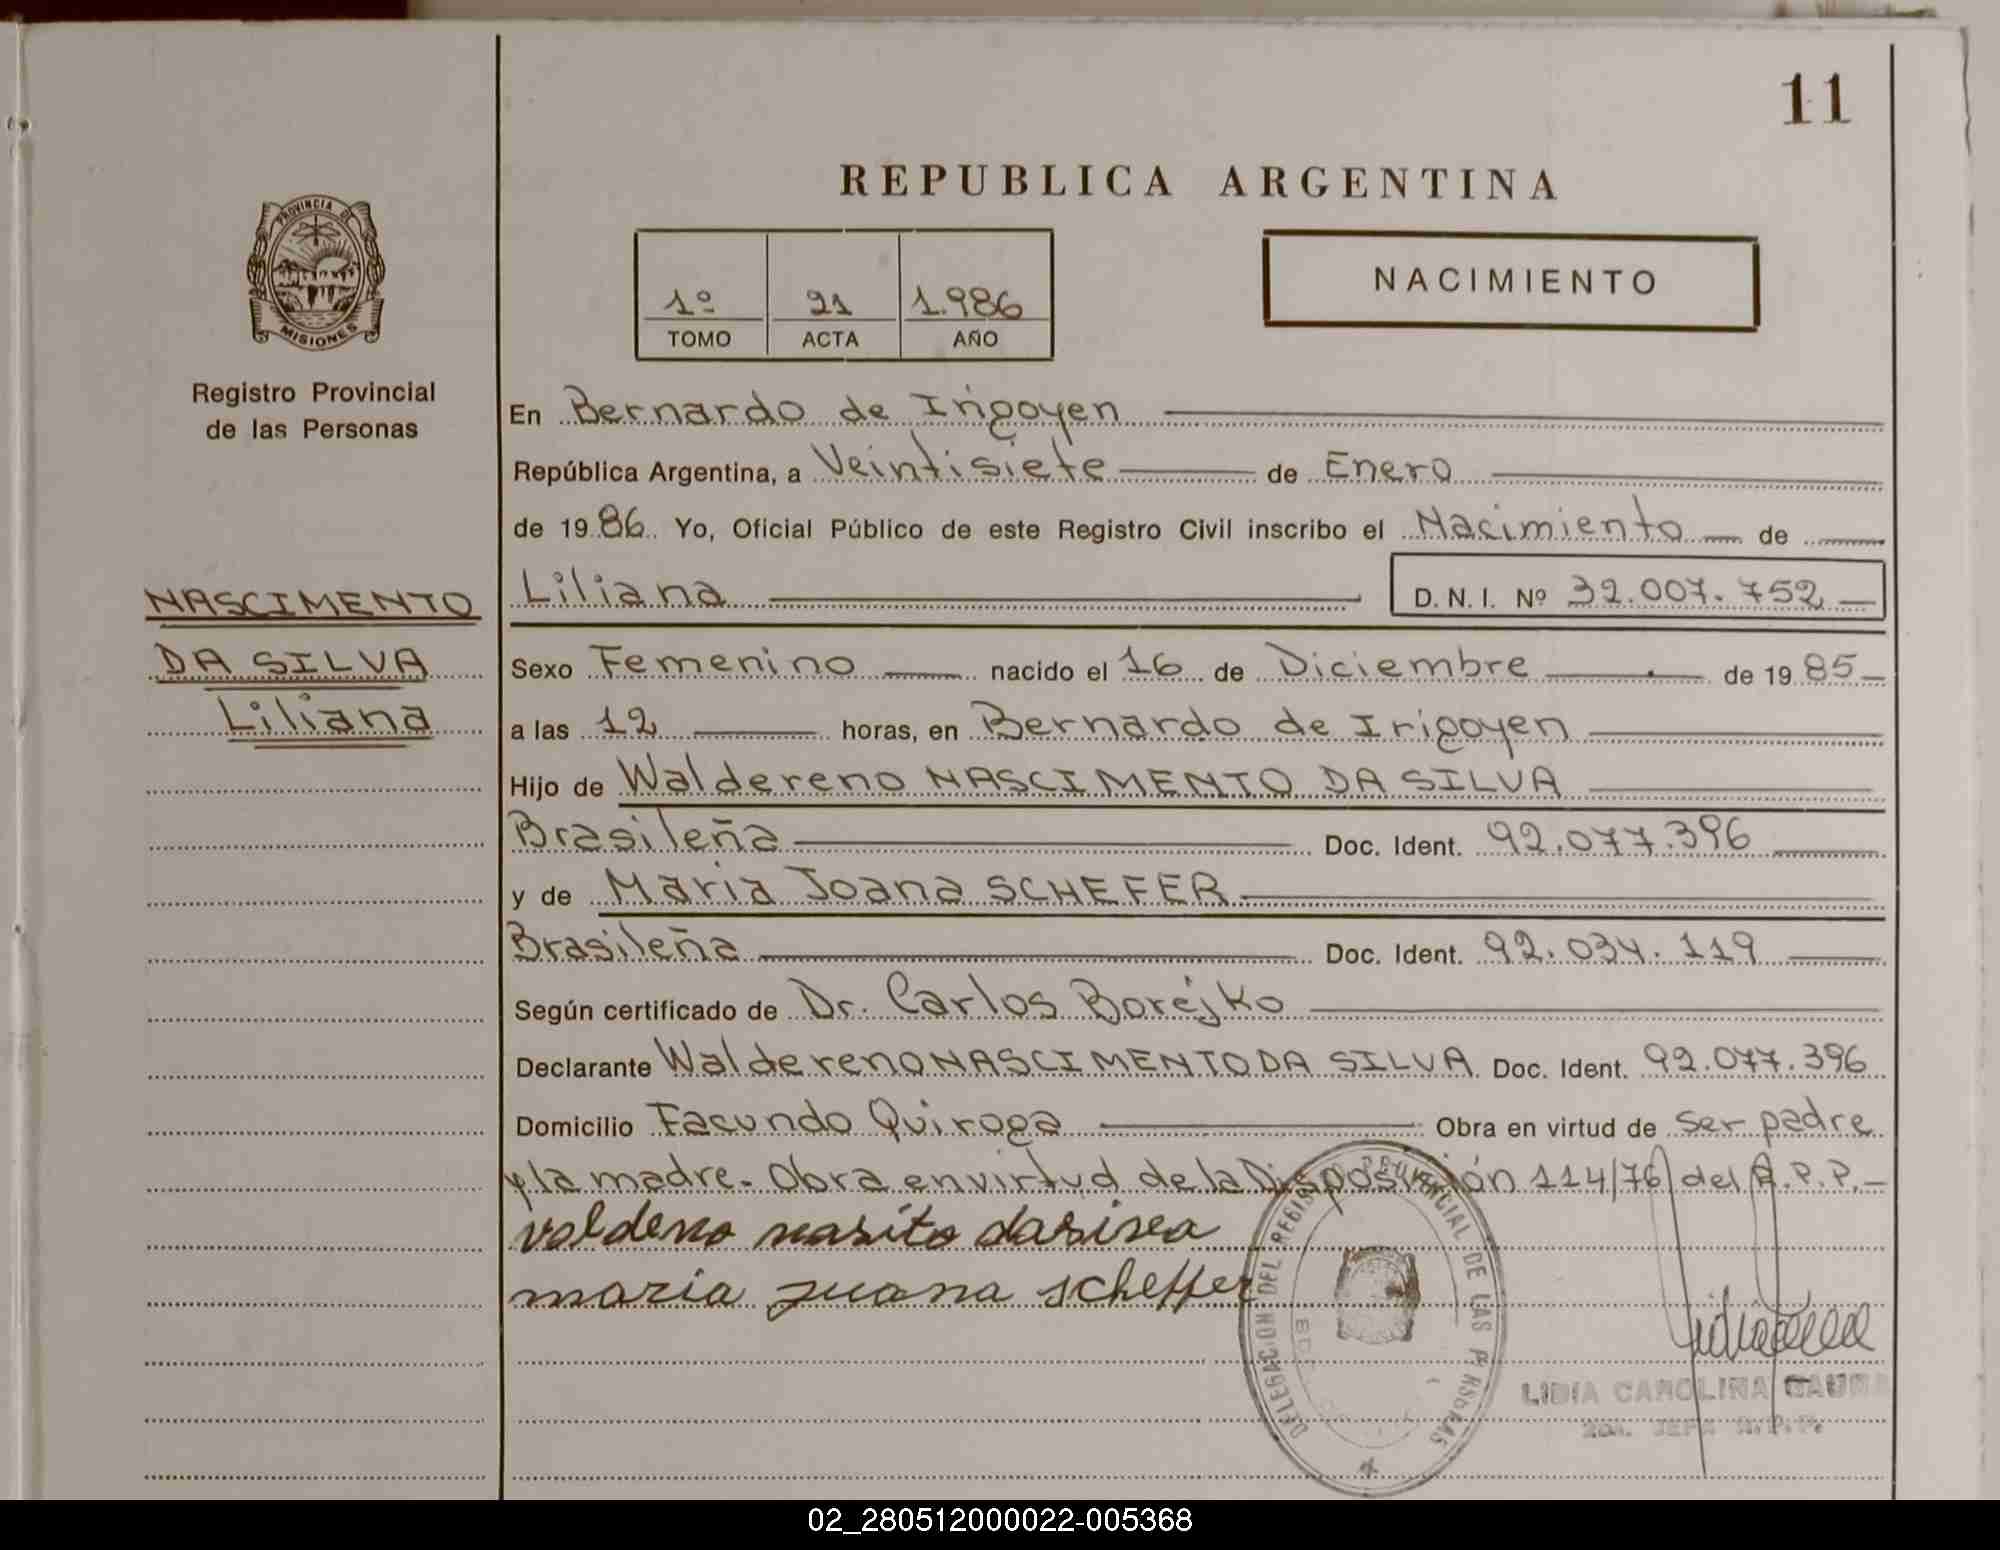 11
REPUBLICA ARGENTINA
PROVINCIA DE
MISIONES
Registro Provincial
de las Personas
1º 21 1.986
TOMO ACTA AÑO
NACIMIENTO
En Bernardo de Irigoyen
República Argentina, a Veintisiete de Enero
de 1986. Yo, Oficial Público de este Registro Civil inscribo el Nacimiento de
Liliana D. N. I. Nº 32.007.752
NASCIMENTO
DA SILVA
Liliana
Sexo Femenino nacido el 16 de Diciembre de 1985
a las 12 horas, en Bernardo de Irigoyen
Hijo de Waldereno NASCIMENTO DA SILVA
Brasileña Doc. Ident. 92.077.396
y de Maria Joana SCHEFER
Brasileña Doc. Ident. 92.034.119
Según certificado de Dr. Carlos Borejko
Declarante Waldereno NASCIMENTO DA SILVA Doc. Ident. 92.077.396
Domicilio Facundo Quiroga Obra en virtud de ser padre
y la madre.- Obra en virtud de la Disposición 114/76 del R.P.P.-
valdeno nasito dasisea
maria juana scheffer
DELEGACION DEL REGISTRO PROVINCIAL DE LAS PERSONAS
LIDIA CAROLINA GAUNA
2da. JEFA R.P.P.
02_280512000022-005368